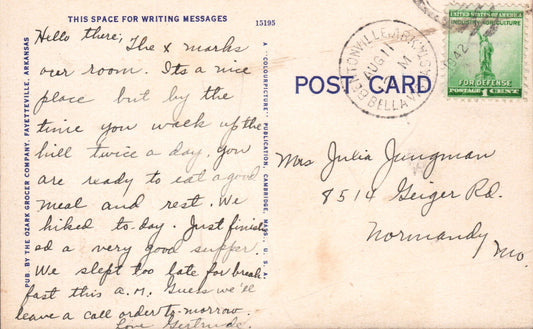 THIS SPACE FOR WRITING MESSAGES
15195
Hello there,
The x marks
our room. Its a nice
place but by the
time you walk up the
hill twice a day, you
are ready to eat a good
meal and rest. We
hiked to-day. Just finish
ed a very good supper.
We slept too late for break
fast this a.m. Guess we'll
leave a call order to-morrow.
Love Gertrude.
PUB. BY THE OZARK GROCER COMPANY, FAYETTEVILLE, ARKANSAS
A "COLOURPICTURE" PUBLICATION, CAMBRIDGE, MASS., U. S. A.
POST CARD
BENTONVILLE, ARK.
AUG 11
M
BELLA VISTA
1942
UNITED STATES OF AMERICA
INDUSTRY AGRICULTURE
FOR DEFENSE
POSTAGE 1 CENT
Mrs Julia Jungman
8514 Geiger Rd.
Normandy
Mo.